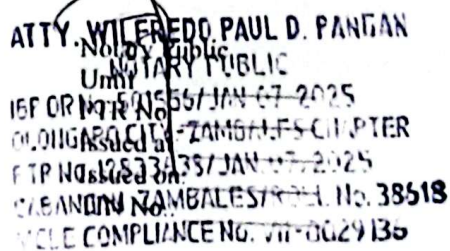 ATTY. WILFREDO PAUL D. PANGAN
Notary Public
NOTARY PUBLIC
Until
IBP OR No. /JAN 07 2025
PTR No.
OLONGAPO CITY-ZAMBALES CHAPTER
Issued at
PTR No. /JAN 07 2025
Issued on:
CABANGAN ZAMBALES/ROLL No. 38618
TIN No.:
MCLE COMPLIANCE No. VIII-0029136